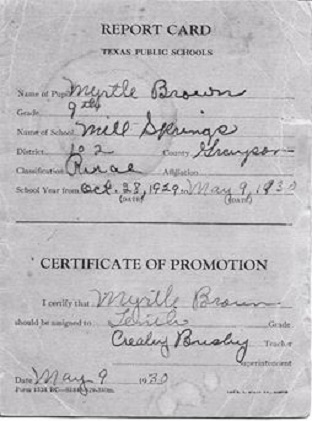 REPORT CARD
TEXAS PUBLIC SCHOOLS
Name of Pupil Myrtle Brown
Grade 9th
Name of School Mill Springs
District 102 County Grayson
Classification Rural Affiliation
School Year from Oct. 28, 1929 to May 9, 1930
(DATE) (DATE)
CERTIFICATE OF PROMOTION
I certify that Myrtle Brown
should be assigned to Tenth Grade
Busby Teacher
Superintendent
Date May 9 1930
Form